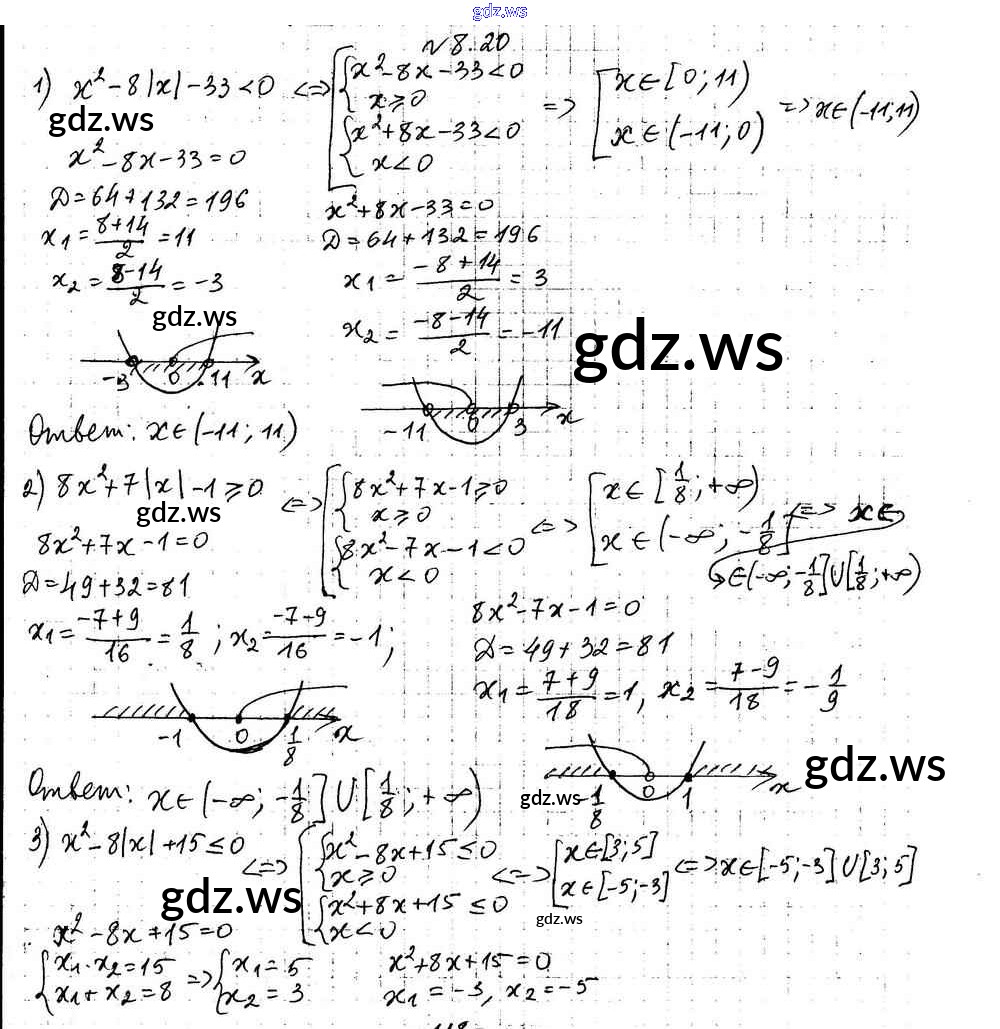 gdz.ws
№ 8.20
1) x² - 8|x| - 33 < 0 <=> [ { x² - 8x - 33 < 0
x ≥ 0
{ x² + 8x - 33 < 0
x < 0
=> [ x ∈ [0; 11)
x ∈ (-11; 0)
=> x ∈ (-11; 11)
gdz.ws
x² - 8x - 33 = 0
D = 64 + 132 = 196
x₁ = (8+14)/2 = 11
x₂ = (8-14)/2 = -3
x² + 8x - 33 = 0
D = 64 + 132 = 196
x₁ = (-8+14)/2 = 3
x₂ = (-8-14)/2 = -11
gdz.ws
gdz.ws
-3 0 11 x
-11 0 3 x
Ответ: x ∈ (-11; 11)
2) 8x² + 7|x| - 1 ≥ 0 <=> [ { 8x² + 7x - 1 ≥ 0
x ≥ 0
{ 8x² - 7x - 1 < 0
x < 0
<=> [ x ∈ [1/8; +∞)
x ∈ (-∞; -1/8]
<=> x ∈
∈ (-∞; -1/8] ∪ [1/8; +∞)
gdz.ws
8x² + 7x - 1 = 0
D = 49 + 32 = 81
x₁ = (-7+9)/16 = 1/8; x₂ = (-7-9)/16 = -1;
8x² - 7x - 1 = 0
D = 49 + 32 = 81
x₁ = (7+9)/18 = 1, x₂ = (7-9)/18 = -1/9
-1 0 1/8 x
-1/8 0 1 x
gdz.ws
gdz.ws
Ответ: x ∈ (-∞; -1/8] ∪ [1/8; +∞)
3) x² - 8|x| + 15 ≤ 0 <=> [ { x² - 8x + 15 ≤ 0
x ≥ 0
{ x² + 8x + 15 ≤ 0
x < 0
<=> [ x ∈ [3; 5]
x ∈ [-5; -3]
<=> x ∈ [-5; -3] ∪ [3; 5]
gdz.ws
gdz.ws
x² - 8x + 15 = 0
{ x₁ · x₂ = 15
x₁ + x₂ = 8
=> { x₁ = 5
x₂ = 3
x² + 8x + 15 = 0
x₁ = -3, x₂ = -5